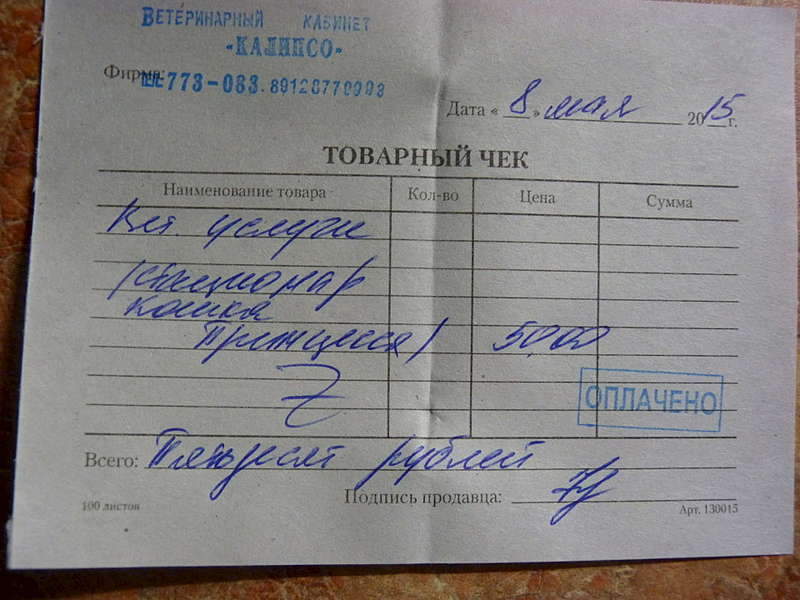 ВЕТЕРИНАРНЫЙ КАБИНЕТ
«КАЛИПСО»
Фирма: 773-083. 89128770993
Дата « 8 » мая 2015 г.
ТОВАРНЫЙ ЧЕК
Наименование товара Кол-во Цена Сумма
Вет. услуги
(стационар
кошка
Принцесса) 50,00
ОПЛАЧЕНО
Всего: Пятьдесят рублей
Подпись продавца:
100 листов Арт. 130015